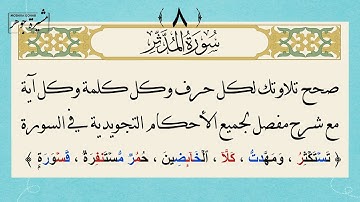 ٨
MOSHIRA GOHAR
مشيرة جوهر
سُورَةُ الْمُدَّثِّر
صحح تلاوتك لكل حرف وكل كلمة وكل آية
مع شرح مفصل لجميع الأحكام التجويدية في السورة
﴿ تَسْتَكْثِرُ ، وَمَهَّدتُّ ، كَلَّا ، ٱلْخَآئِضِينَ ، حُمُرٌ مُّسْتَنفِرَةٌ ، قَسْوَرَةٍ ﴾